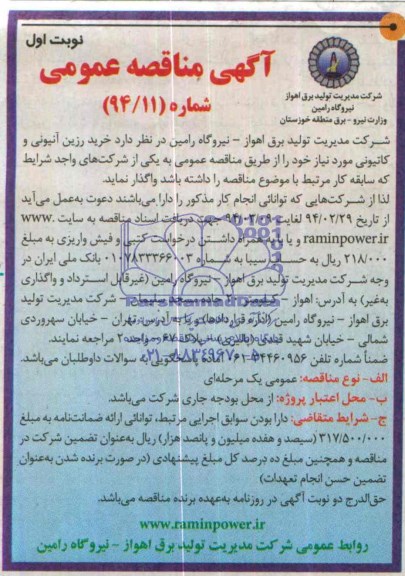 نوبت اول
آگهی مناقصه عمومی
شماره (۹۴/۱۱)
شرکت مدیریت تولید برق اهواز
نیروگاه رامین
وزارت نیرو - برق منطقه خوزستان
شرکت مدیریت تولید برق اهواز - نیروگاه رامین در نظر دارد خرید رزین آنیونی و
کاتیونی مورد نیاز خود را از طریق مناقصه عمومی به یکی از شرکت‌های واجد شرایط
که سابقه کار مرتبط با موضوع مناقصه را داشته باشد واگذار نماید.
لذا از شرکت‌هایی که توانائی انجام کار مذکور را دارا می‌باشند دعوت به‌عمل می‌آید
از تاریخ ۹۴/۰۲/۲۹ لغایت ۹۴/۰۳/۰۹ جهت دریافت اسناد مناقصه به سایت www.
raminpower.ir و یا به همراه داشتن درخواست کتبی و فیش واریزی به مبلغ
۲۱۸/۰۰۰ ریال به حساب سیبا به شماره بانک ملی ایران در
وجه شرکت مدیریت تولید برق اهواز - نیروگاه رامین (غیرقابل استرداد و واگذاری
به‌غیر) به آدرس: اهواز - کیلومتر جاده مسجد سلیمان - شرکت مدیریت تولید
برق اهواز - نیروگاه رامین (اداره قراردادها) و یا به آدرس: تهران - خیابان سهروردی
شمالی - خیابان شهید قندی (پالیزی) - پلاک - واحد ۲ مراجعه نمایند.
ضمناً شماره تلفن آماده پاسخگویی به سوالات داوطلبان می‌باشد.
الف- نوع مناقصه: عمومی یک مرحله‌ای
ب- محل اعتبار پروژه: از محل بودجه جاری شرکت می‌باشد.
ج- شرایط متقاضی: دارا بودن سوابق اجرایی مرتبط، توانائی ارائه ضمانت‌نامه به مبلغ
۳۱۷/۵۰۰/۰۰۰ (سیصد و هفده میلیون و پانصد هزار) ریال به‌عنوان تضمین شرکت در
مناقصه و همچنین مبلغ ده درصد کل مبلغ پیشنهادی (در صورت برنده شدن به‌عنوان
تضمین حسن انجام تعهدات)
حق‌الدرج دو نوبت آگهی در روزنامه به‌عهده برنده مناقصه می‌باشد.
www.raminpower.ir
روابط عمومی شرکت مدیریت تولید برق اهواز - نیروگاه رامین